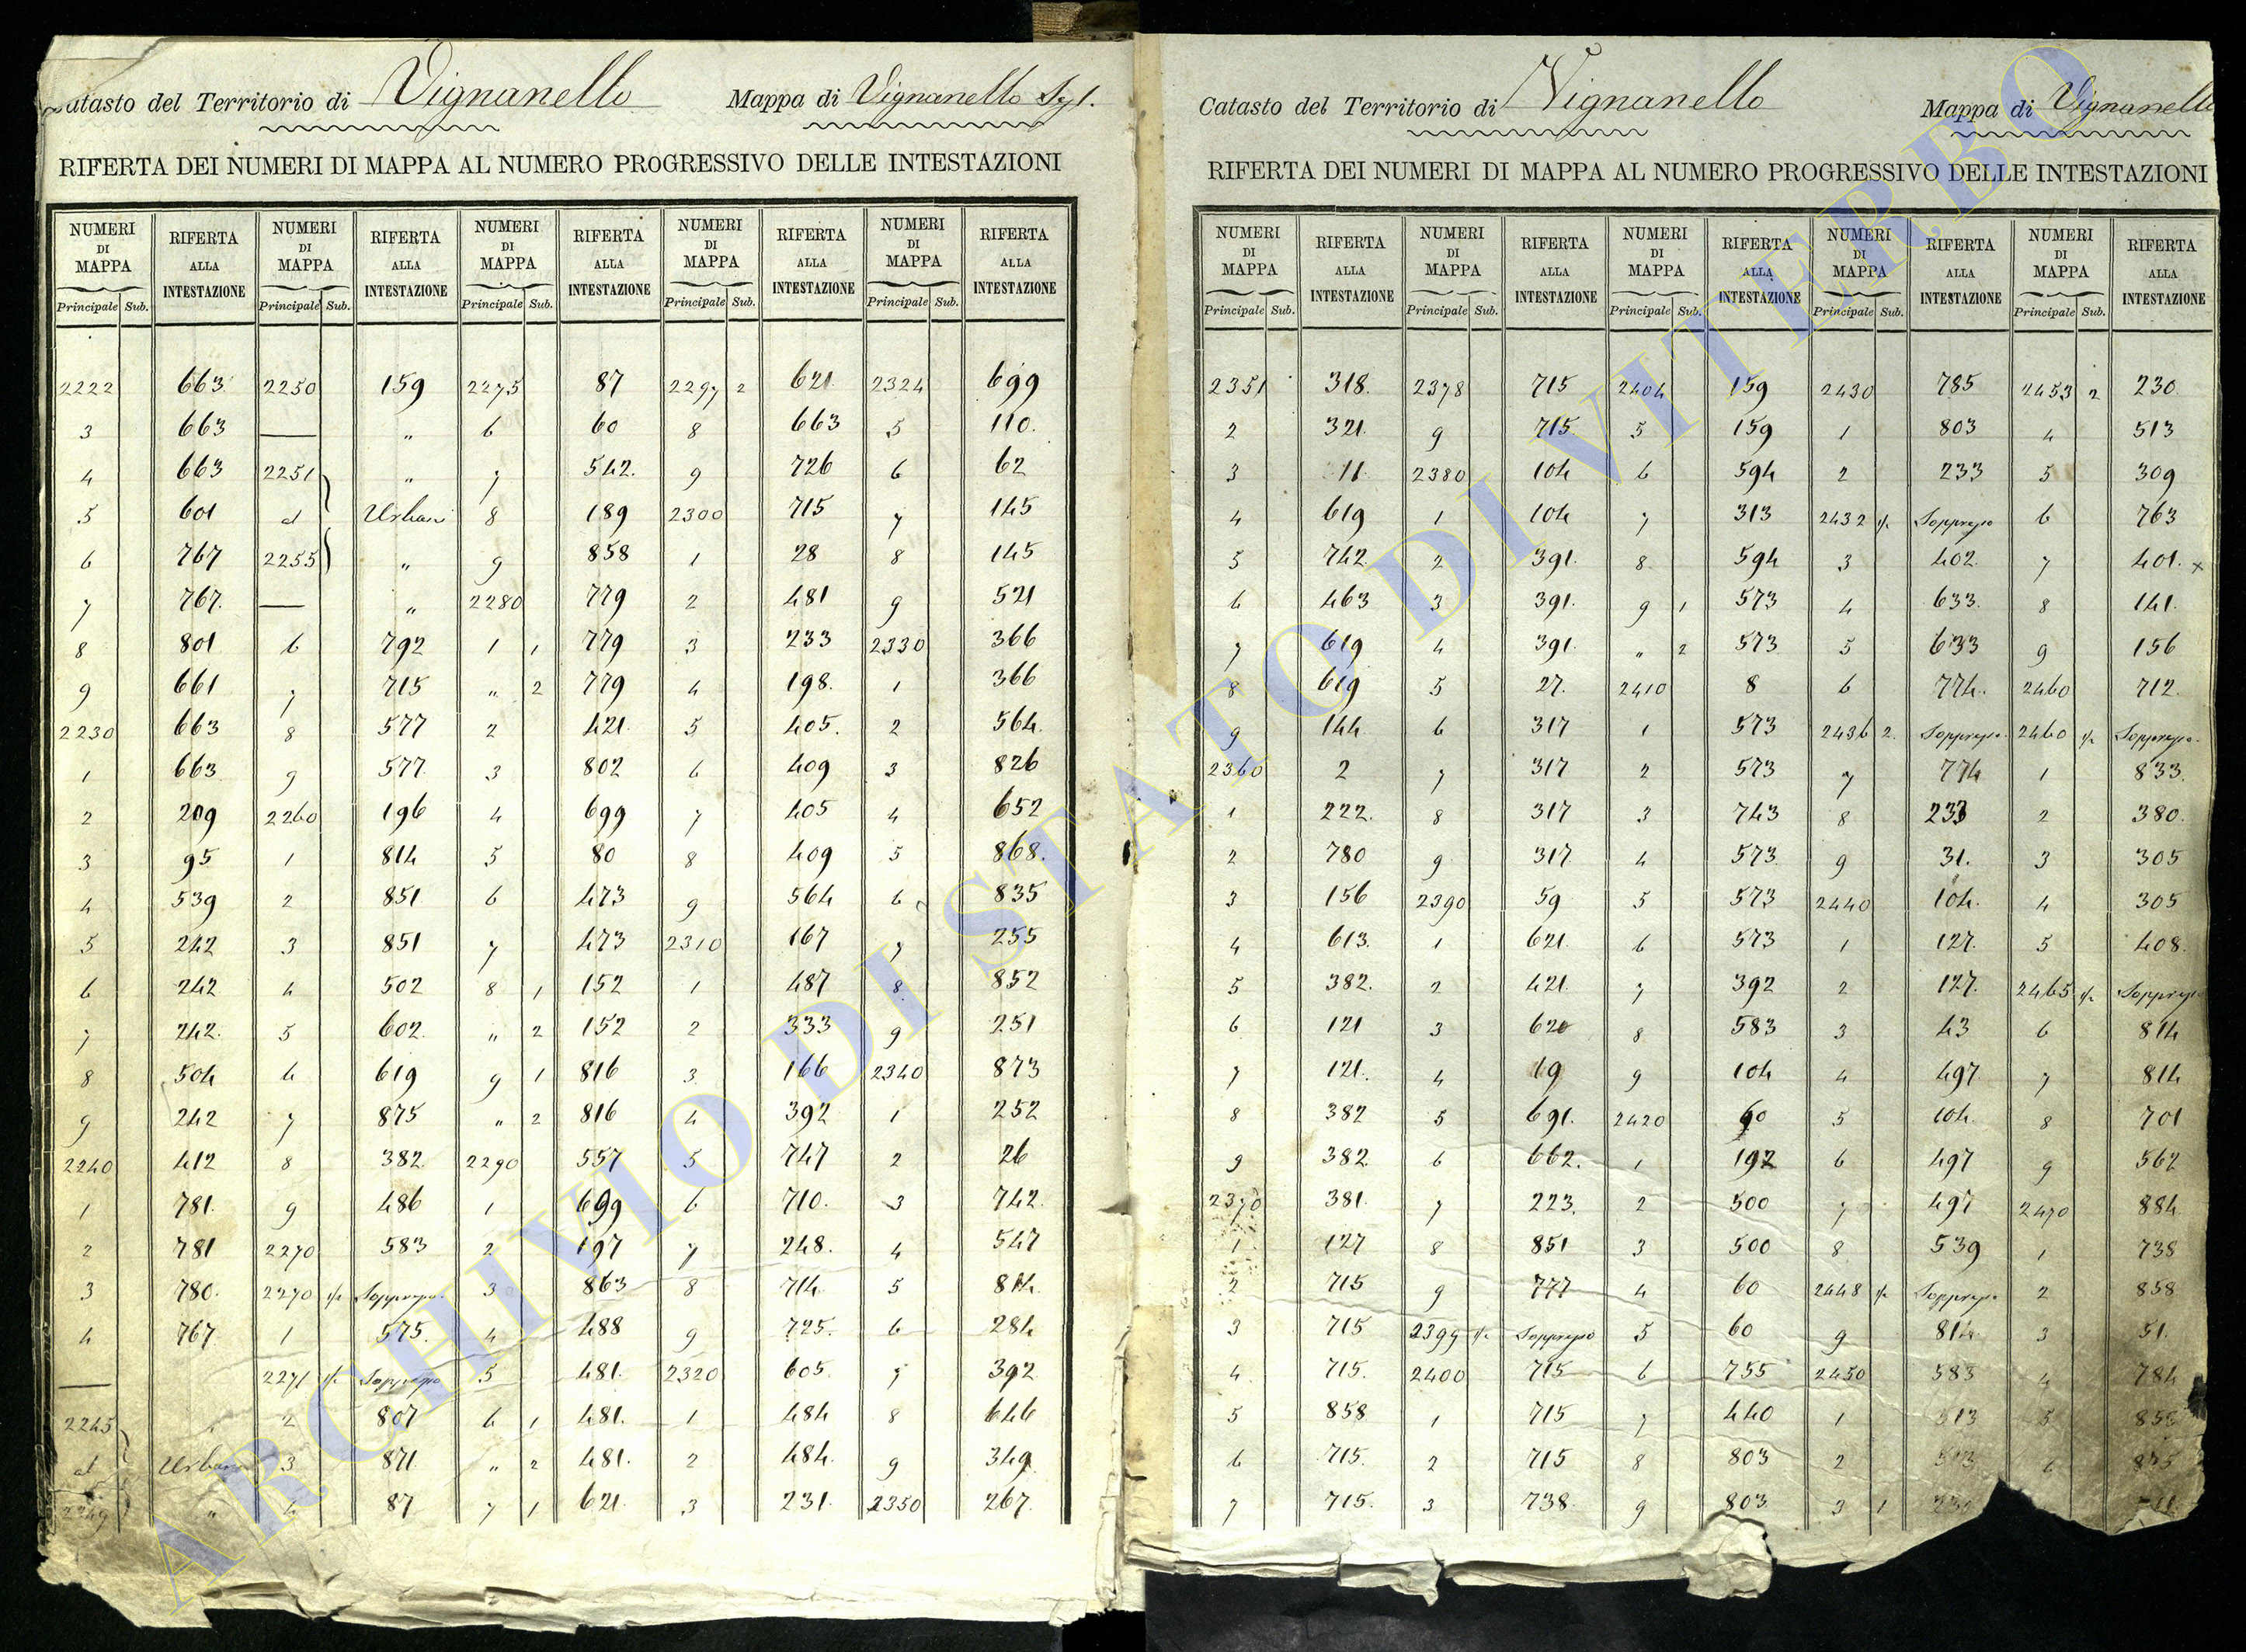 Catasto del Territorio di Vignanello Mappa di Vignanello
RIFERTA DEI NUMERI DI MAPPA AL NUMERO PROGRESSIVO DELLE INTESTAZIONI
NUMERI DI MAPPA RIFERTA ALLA INTESTAZIONE NUMERI DI MAPPA RIFERTA ALLA INTESTAZIONE NUMERI DI MAPPA RIFERTA ALLA INTESTAZIONE NUMERI DI MAPPA RIFERTA ALLA INTESTAZIONE NUMERI DI MAPPA RIFERTA ALLA INTESTAZIONE
Principale Sub. Principale Sub. Principale Sub. Principale Sub. Principale Sub.
2222 663 2250 159 2275 87 2297 2 621 2324 699
3 663 — " 6 60 8 663 5 110.
4 663 2251 " 7 542. 9 726 6 62
5 601 al Urbani 8 189 2300 715 7 145
6 767 2255 " 9 858 1 28 8 145
7 767. — " 2280 779 2 481 9 521
8 801 6 792 1 1 779 3 233 2330 366
9 661 7 715 " 2 779 4 198. 1 366
2230 663 8 577 2 421. 5 405. 2 564.
1 663 9 577. 3 802 6 409 3 826
2 209 2260 196 4 699 7 405 4 652
3 95 1 814 5 80 8 409 5 868.
4 539 2 851 6 473 9 564 6 835
5 242 3 851 7 473 2310 167 7 255
6 242 4 502 8 1 152 1 487 8. 852
7 242. 5 602. " 2 152 2 333 9 251
8 504 6 619 9 1 816 3 166 2340 873
9 242 7 875 " 2 816 4 392 1 252
2240 412 8 382 2290 557 5 747 2 26
1 781. 9 486 1 699 6 710. 3 742.
2 781 2270 583 2 197 7 248. 4 547
3 780. 2270 ½ Soppresso 3 863 8 714. 5 814.
4 767 1 575. 4 488 9 725. 6 284
— 2271 ½ Soppresso 5 481. 2320 605 7 392
2245 " 2 807 6 1 481. 1 484 8 646
al Urbani 3 871 " 2 481. 2 484. 9 349
2249 " 4 87 7 1 621. 3 231. 2350 267.
Catasto del Territorio di Vignanello Mappa di Vignanello
RIFERTA DEI NUMERI DI MAPPA AL NUMERO PROGRESSIVO DELLE INTESTAZIONI
NUMERI DI MAPPA RIFERTA ALLA INTESTAZIONE NUMERI DI MAPPA RIFERTA ALLA INTESTAZIONE NUMERI DI MAPPA RIFERTA ALLA INTESTAZIONE NUMERI DI MAPPA RIFERTA ALLA INTESTAZIONE NUMERI DI MAPPA RIFERTA ALLA INTESTAZIONE
Principale Sub. Principale Sub. Principale Sub. Principale Sub. Principale Sub.
2351 318. 2378 715 2404 159 2430 785 2453 2 230
2 321. 9 715. 5 159 1 803 4 513
3 11. 2380 104 6 594 2 233 5 309
4 619 1 104 7 313 2432 ½ Soppresso 6 763
5 742. 2 391. 8 594 3 402. 7 401. x
6 463 3 391. 9 1 573 4 633. 8 141.
7 619 4 391. " 2 573 5 633 9 156
8 619 5 27. 2410 8 6 774. 2460 712.
9 144 6 317 1 573 2436 2. Soppresso 2460 ½ Soppresso
2360 2 7 317 2 573 7 774 1 833.
1 222. 8 317 3 743 8 233 2 380.
2 780 9 317 4 573 9 31. 3 305
3 156 2390 59 5 573 2440 104. 4 305
4 613. 1 621. 6 573 1 127. 5 408.
5 382. 2 421. 7 392 2 127. 2465 ½ Soppresso
6 121 3 620 8 583 3 43 6 814
7 121. 4 19 9 104 4 497. 7 814
8 382 5 691. 2420 60 5 104. 8 701
9 382. 6 662. 1 192 6 497 9 562
2370 381. 7 223. 2 500 7 497 2470 884
1 127 8 851 3 500 8 539 1 738
2 715 9 777 4 60 2448 ½ Soppresso 2 858
3 715 2399 ½ Soppresso 5 60 9 814 3 51.
4 715. 2400 715 6 755 2450 583 4 784
5 858 1 715 7 440 1 513 5
6 715. 2 715 8 803 2 6
7 715. 3 738. 9 803 3 1
ARCHIVIO DI STATO DI VITERBO